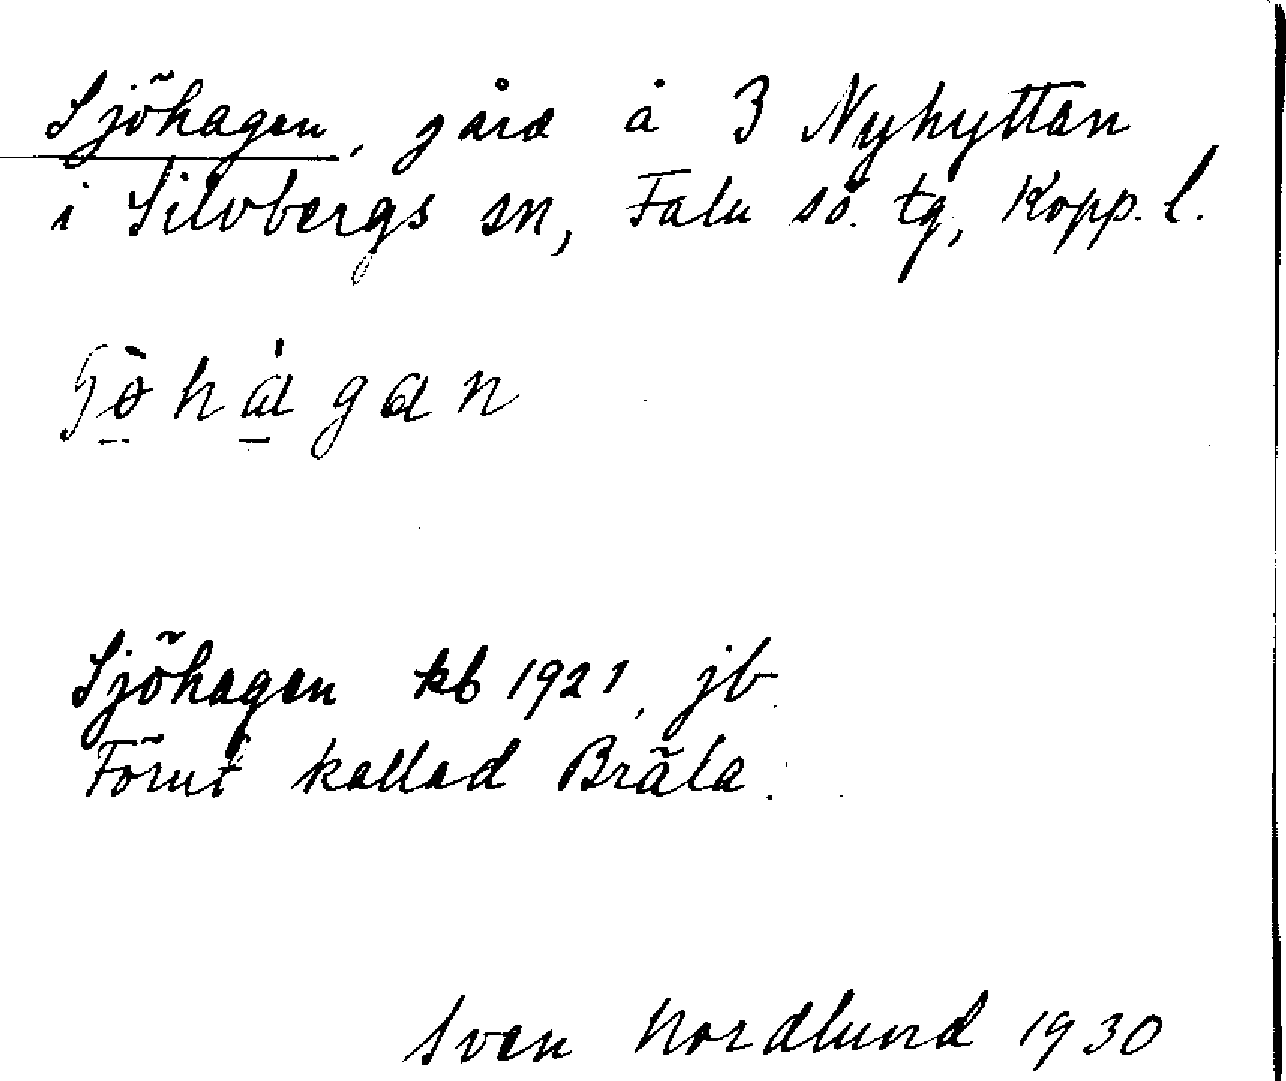 Sjöhagen, gård å 3 Nyhyttan
i Silvbergs sn, Falu sö. tg, Kopp. l.
Sjöhagen kb 1921, jb.
Förut kallad Bräla.
Sven Nordlund 1930